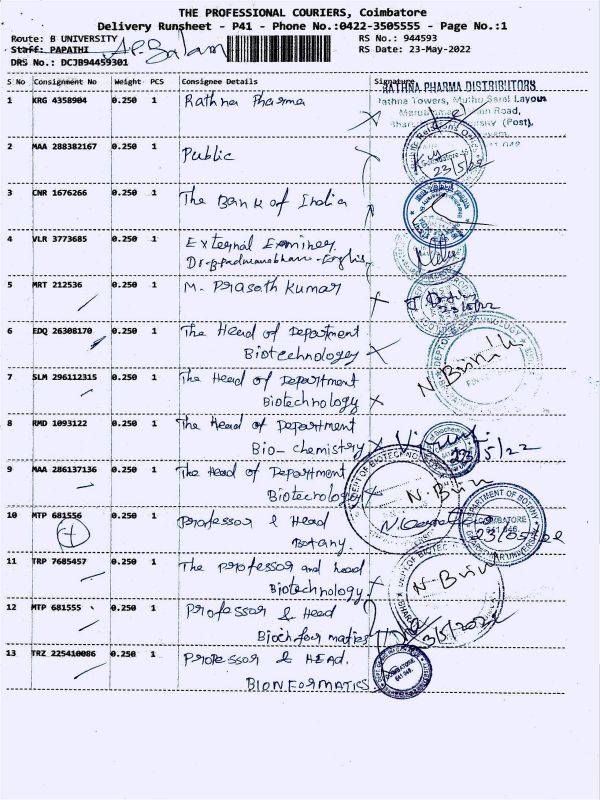 THE PROFESSIONAL COURIERS, Coimbatore
Delivery Runsheet - P41 - Phone No.:0422-3505555 - Page No.:1
Route: B UNIVERSITY
RS No.: 944593
Staff: PAPATHI
RS Date: 23-May-2022
DRS No.: DCJB94459301
S No Consignment No Weight PCS Consignee Details Signature
RATHNA PHARMA DISTRIBUTORS
1 KRG 4358904 0.250 1 Rathna Pharma
2 MAA 288382167 0.250 1 Public
23/5/22
3 CNR 1676266 0.250 1 The Bank of India
4 VLR 3773685 0.250 1 External Examiner
Dr. B. Padmanabhan - English
5 MRT 212536 0.250 1 M. Prasath Kumar
23/5/22
6 EDQ 26308170 0.250 1 The Head of Department
Biotechnology
7 SLM 296112315 0.250 1 The Head of Department
Biotechnology
8 RMD 1093122 0.250 1 The Head of Department
Bio-chemistry
23/5/22
9 MAA 286137136 0.250 1 The Head of Department
Biotecnology
10 MTP 681556 0.250 1 Professor & Head
Botany.
DEPARTMENT OF BOTANY
COIMBATORE
641 046
23/05/22
11 TRP 7685457 0.250 1 The Professor and head
Biotechnology
12 MTP 681555 0.250 1 Professor & Head
Bioinformatics
23/5/2022
13 TRZ 225410086 0.250 1 Professor & HEAD.
BIONFORMATICS
COIMBATORE
641 046